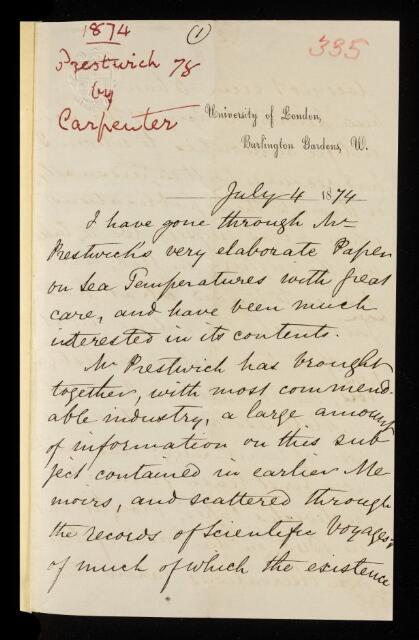 1874
(1)
335
Prestwich 78
by
Carpenter
University of London,
Burlington Gardens, W.
July 4 1874
I have gone through Mr
Prestwich's very elaborate Paper
on Sea Temperatures with great
care, and have been much
interested in its contents.
Mr Prestwich has brought
together, with most commend-
able industry, a large amount
of information on this sub
ject contained in earlier Me
moirs, and scattered through
the records of Scientific Voyages;
of much of which the existence